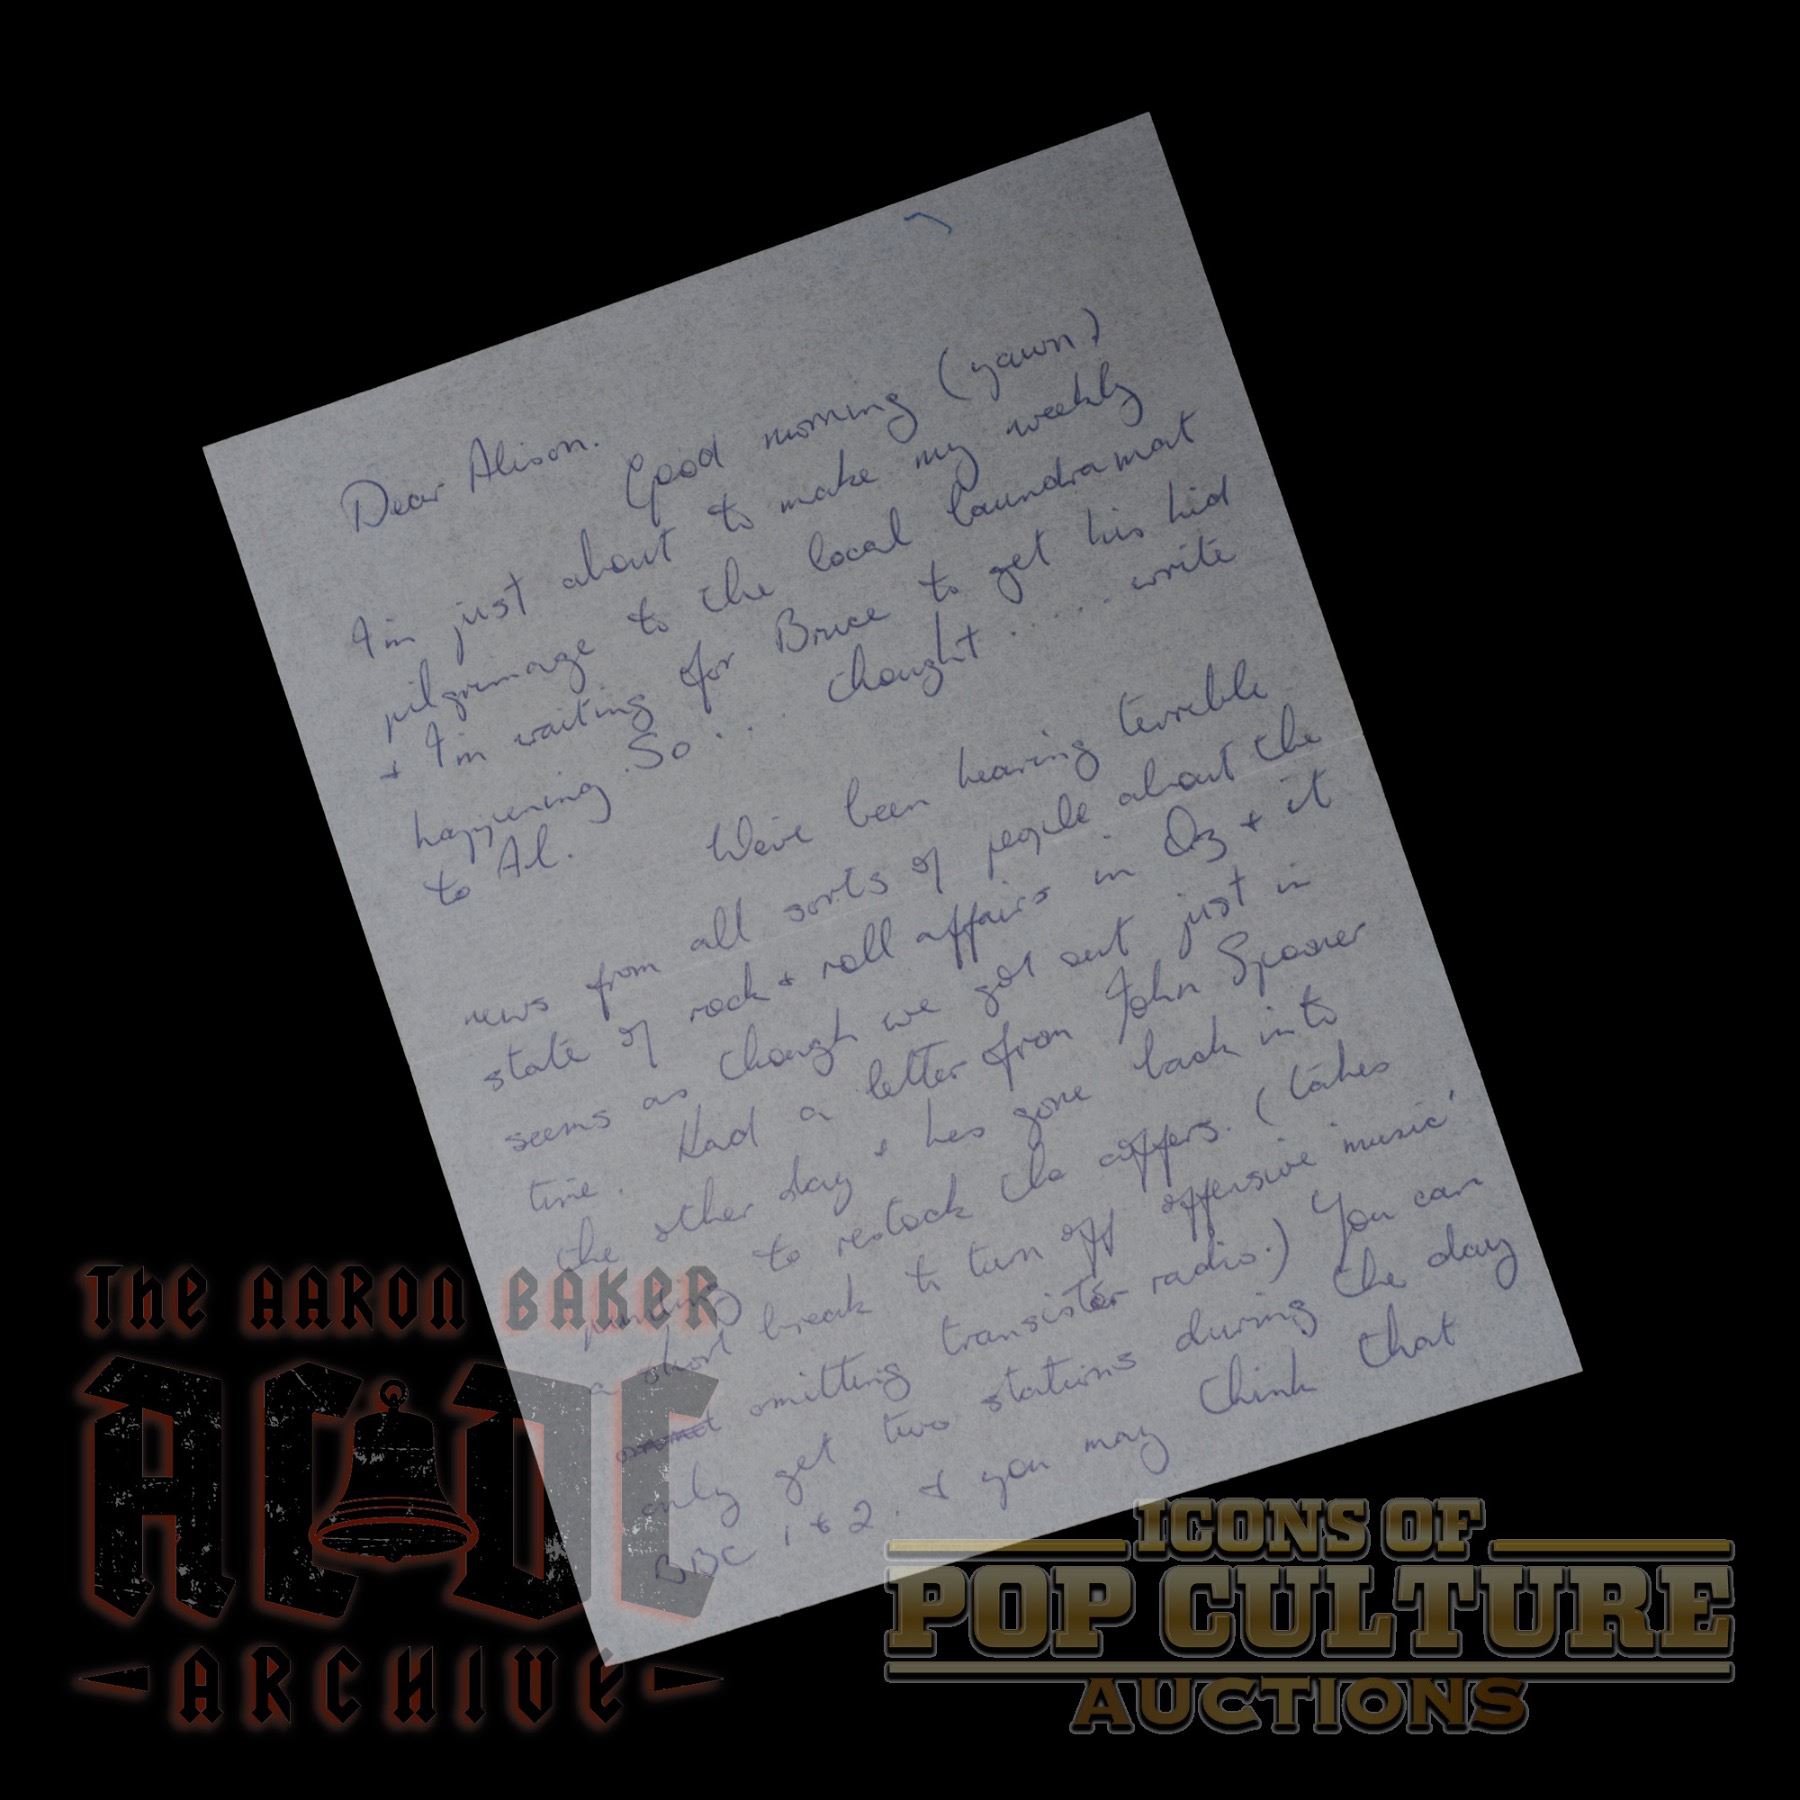 Dear Alison.
Good morning (yawn)
I'm just about to make my weekly
pilgrimage to the local laundramat
+ I'm waiting for Bruce to get his
happening. So... thought ..... write
to Al.
We've been hearing terrible
news from all sorts of people about the
state of rock + roll affairs in Oz + it
seems as though we got out just in
time. Had a letter from John Spooner
the other day + hes gone back into
to restock the coffers. (takes
a short break to turn off offensive 'music'
omitting transistor radio.) You can
only get two stations during the day
BBC 1 + 2. + you may think that
THE AARON BAKER
AC DC
ARCHIVE
ICONS OF
POP CULTURE
AUCTIONS